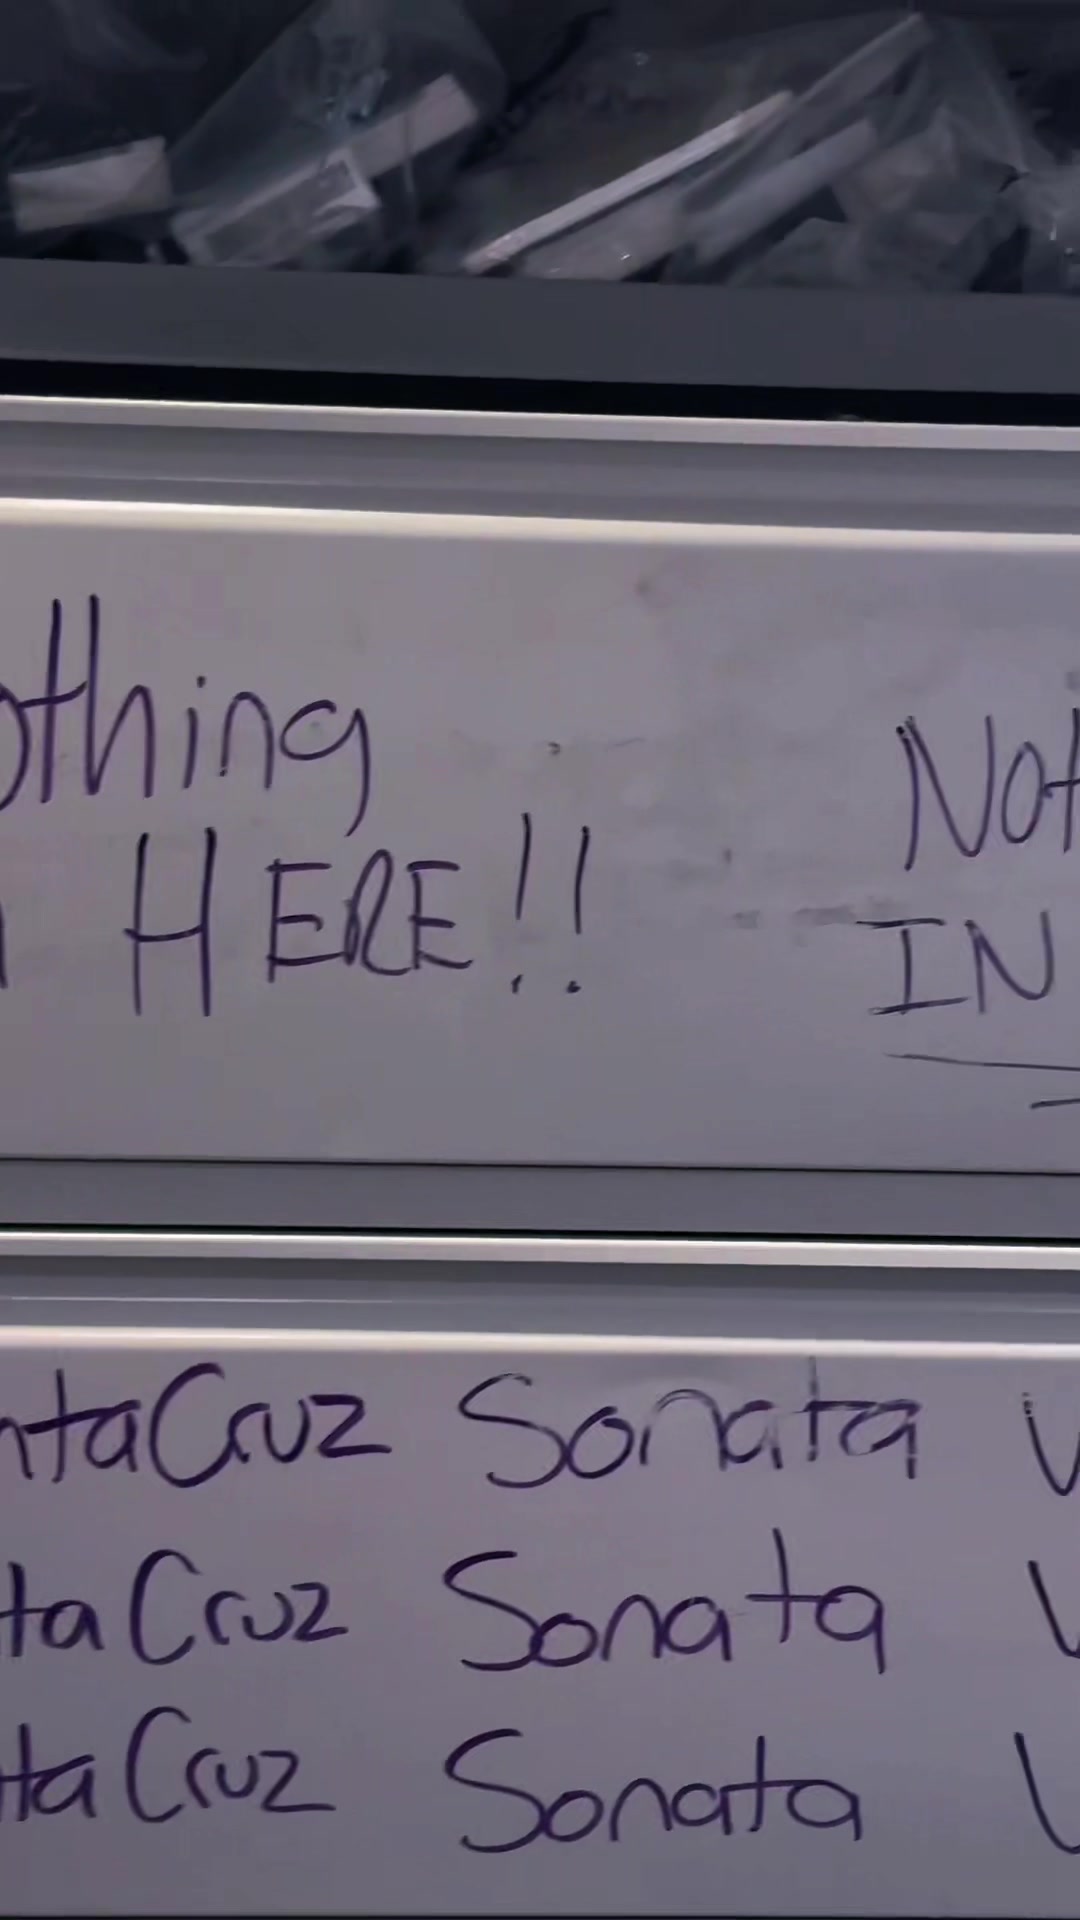 othing
HERE!!
Not
IN
ntaCruz Sonata V
ta Cruz Sonata V
ta Cruz Sonata V